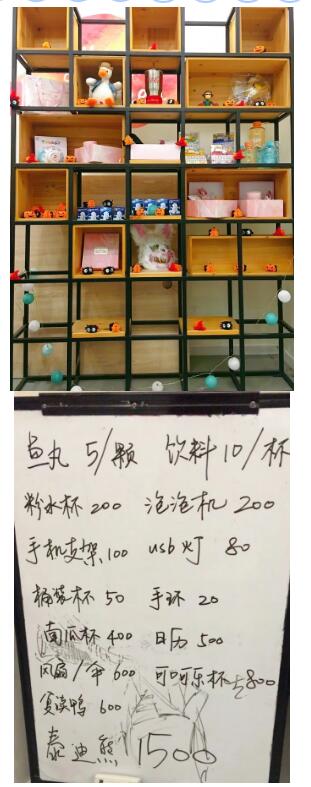 鱼丸 5/颗 饮料 10/杯
粉水杯 200 泡泡机 200
手机支架 100 usb灯 80
桶装杯 50 手环 20
南瓜杯 400 日历 500
风扇/伞 600 可口可乐杯 800
复读鸭 600
泰迪熊 1500